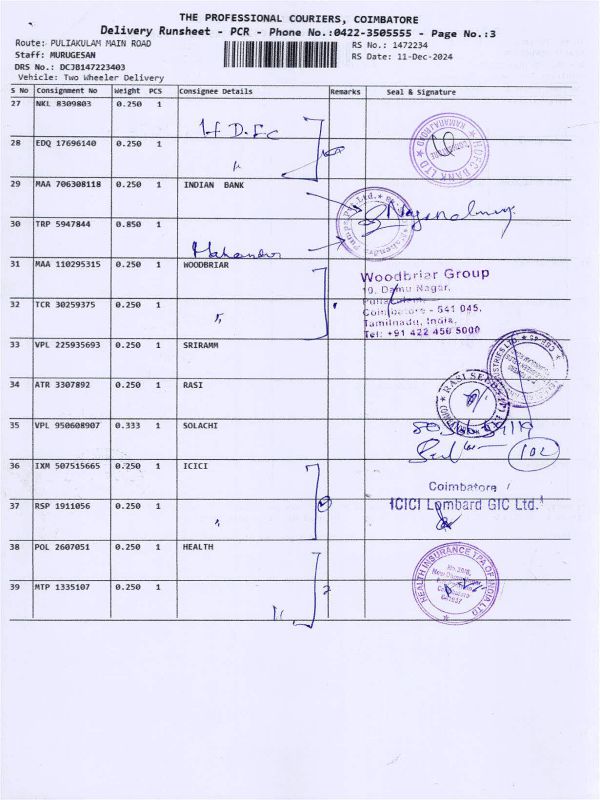 THE PROFESSIONAL COURIERS, COIMBATORE
Delivery Runsheet - PCR - Phone No.:0422-3505555 - Page No.:3
Route: PULIAKULAM MAIN ROAD
RS No.: 1472234
Staff: MURUGESAN
RS Date: 11-Dec-2024
DRS No.: DCJB147223403
Vehicle: Two Wheeler Delivery
S No Consignment No Weight PCS Consignee Details Remarks Seal & Signature
27 NKL 8309803 0.250 1
28 EDQ 17696140 0.250 1
HDFC BANK LTD
29 MAA 706308118 0.250 1 INDIAN BANK
30 TRP 5947844 0.850 1
31 MAA 110295315 0.250 1 WOODBRIAR
Woodbriar Group
19, Damu Nagar,
32 TCR 30259375 0.250 1
Coimbatore - 641 045.
Tamilnadu, India.
Tel: +91 422 450 5000
33 VPL 225935693 0.250 1 SRIRAMM
34 ATR 3307892 0.250 1 RASI
RASI SEEDS (P)
35 VPL 950608907 0.333 1 SOLACHI
102
36 IXM 507515665 0.250 1 ICICI
Coimbatore
ICICI Lombard GIC Ltd.
37 RSP 1911056 0.250 1
38 POL 2607051 0.250 1 HEALTH
HEALTH INSURANCE TPA OF INDIA LTD
39 MTP 1335107 0.250 1